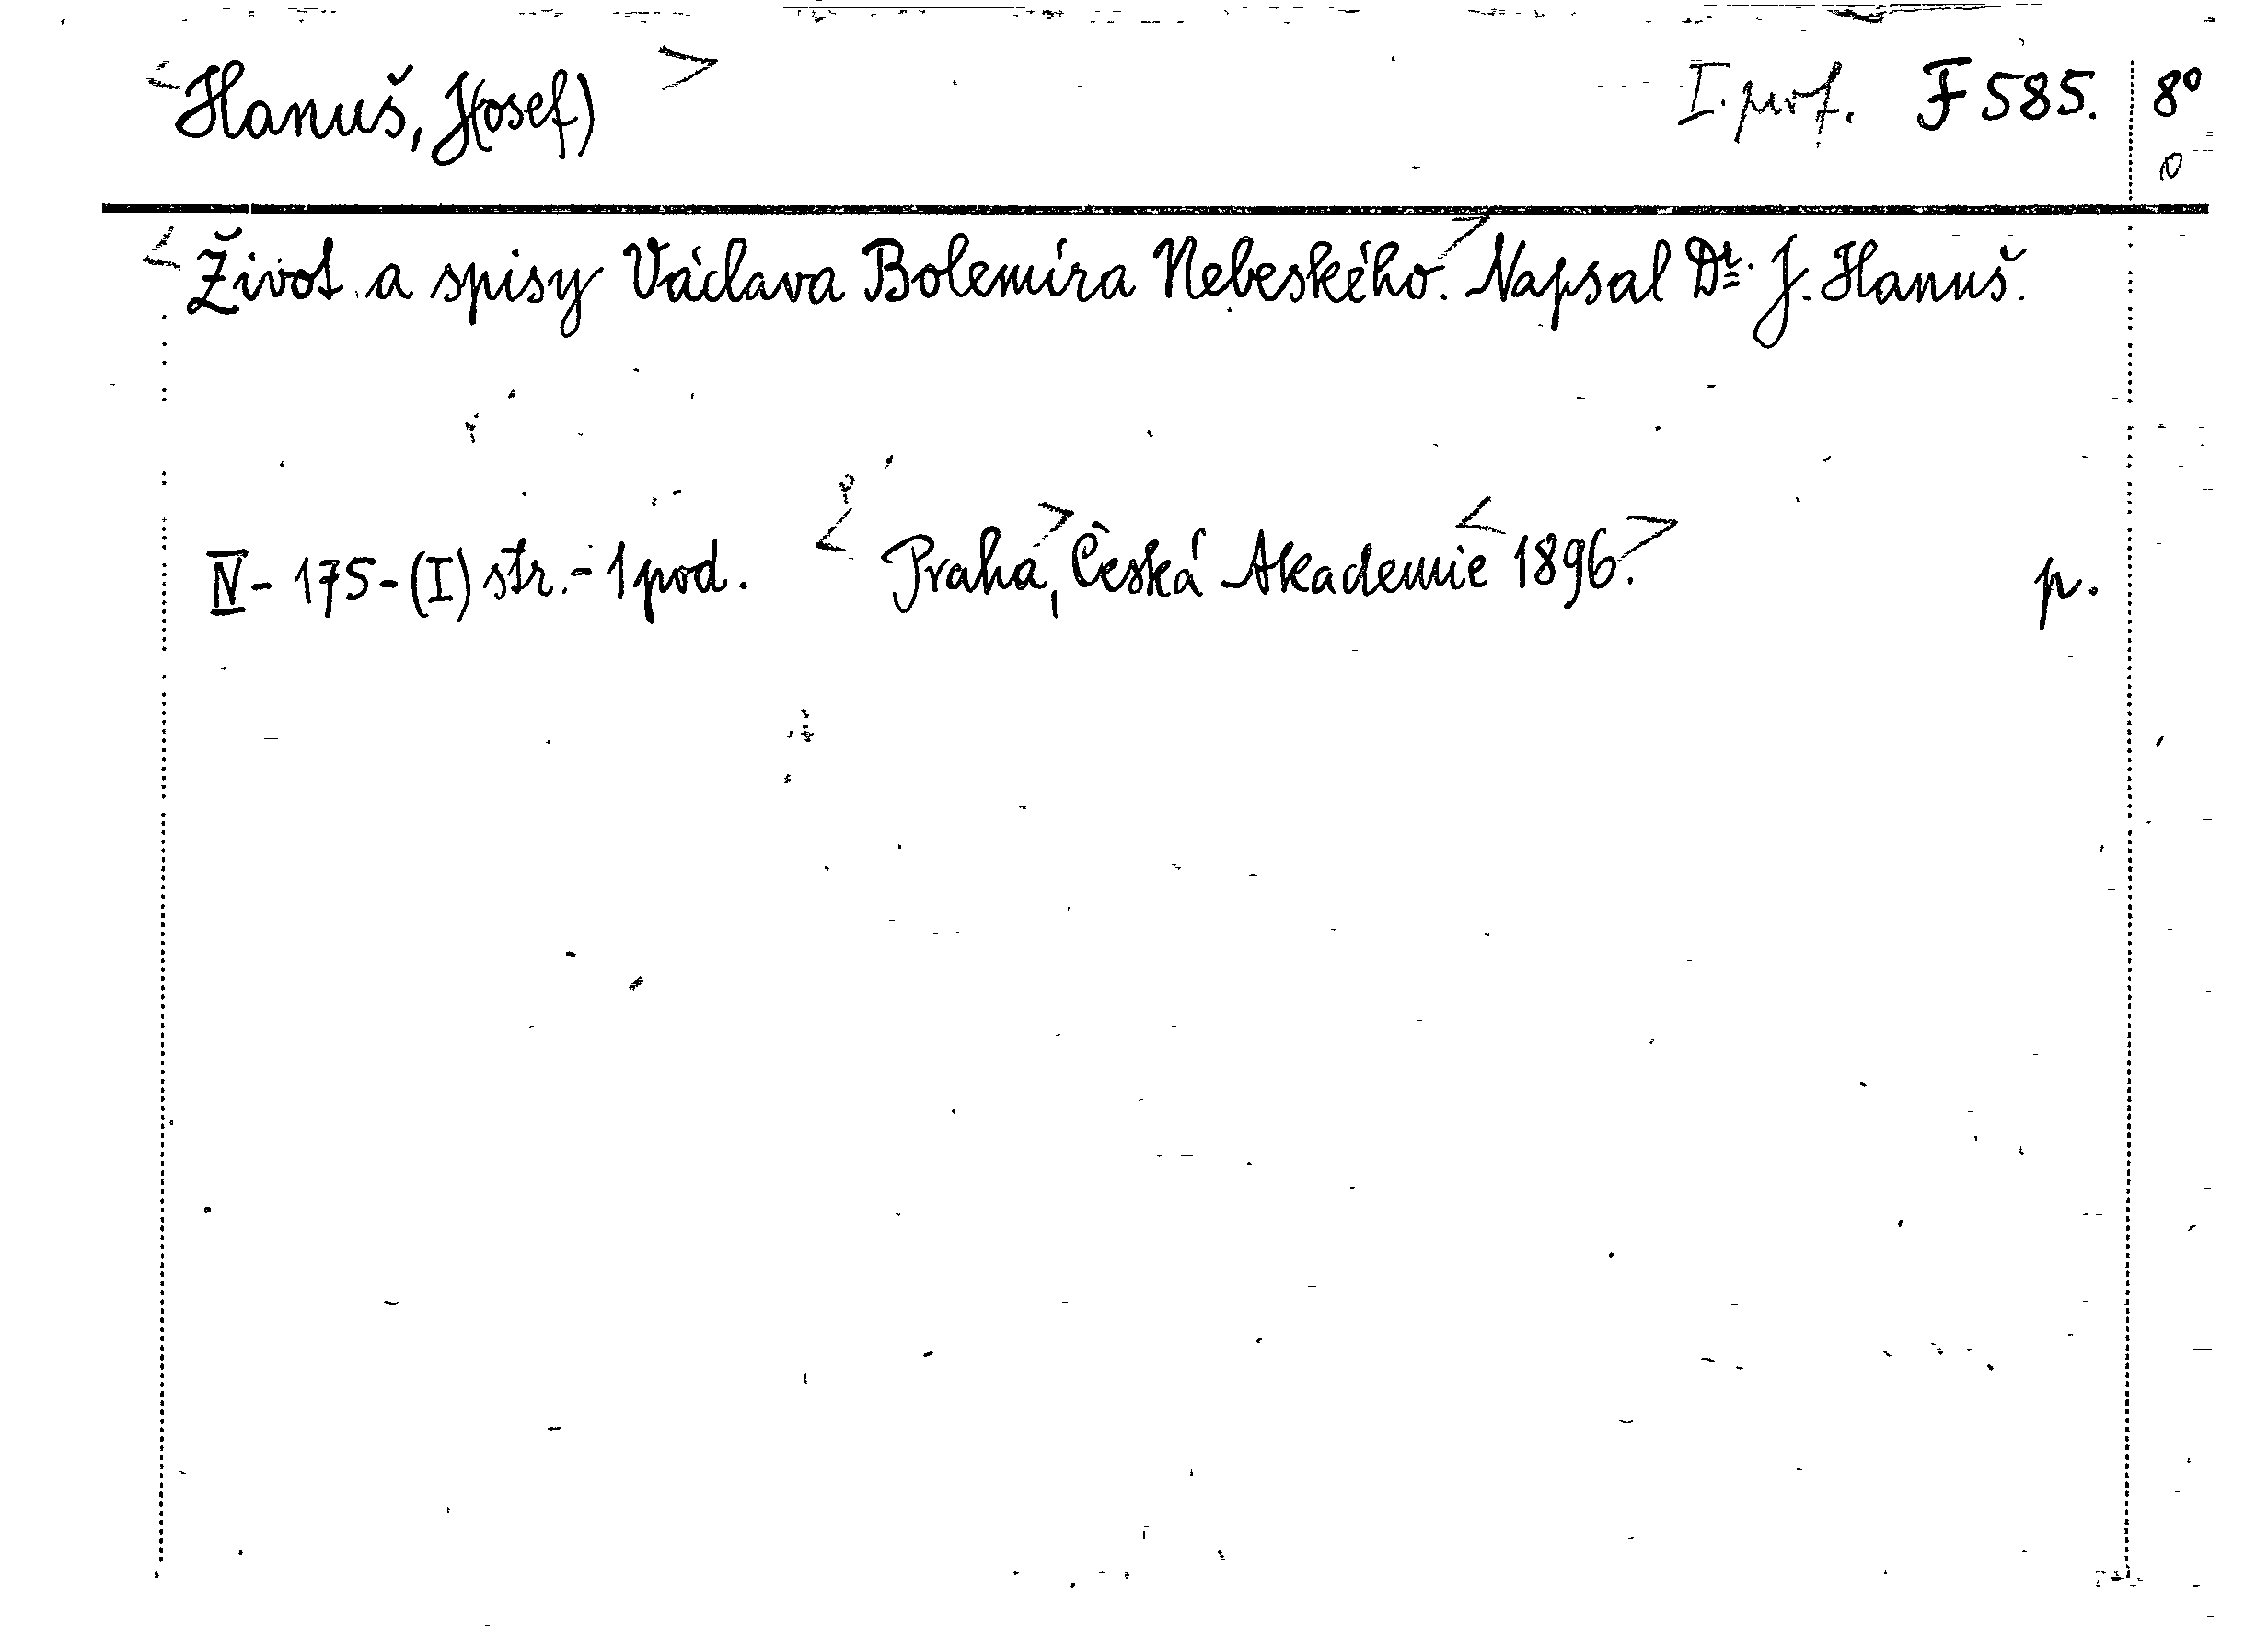 <Hanuš, J(osef)> I. prof. F 585. 8°
0
<Život a spisy Václava Bolemíra Nebeského.> Napsal Dr. J. Hanuš.
IV - 175 - (I) str. - 1 pod. <Praha>, Česká Akademie <1896.> p.